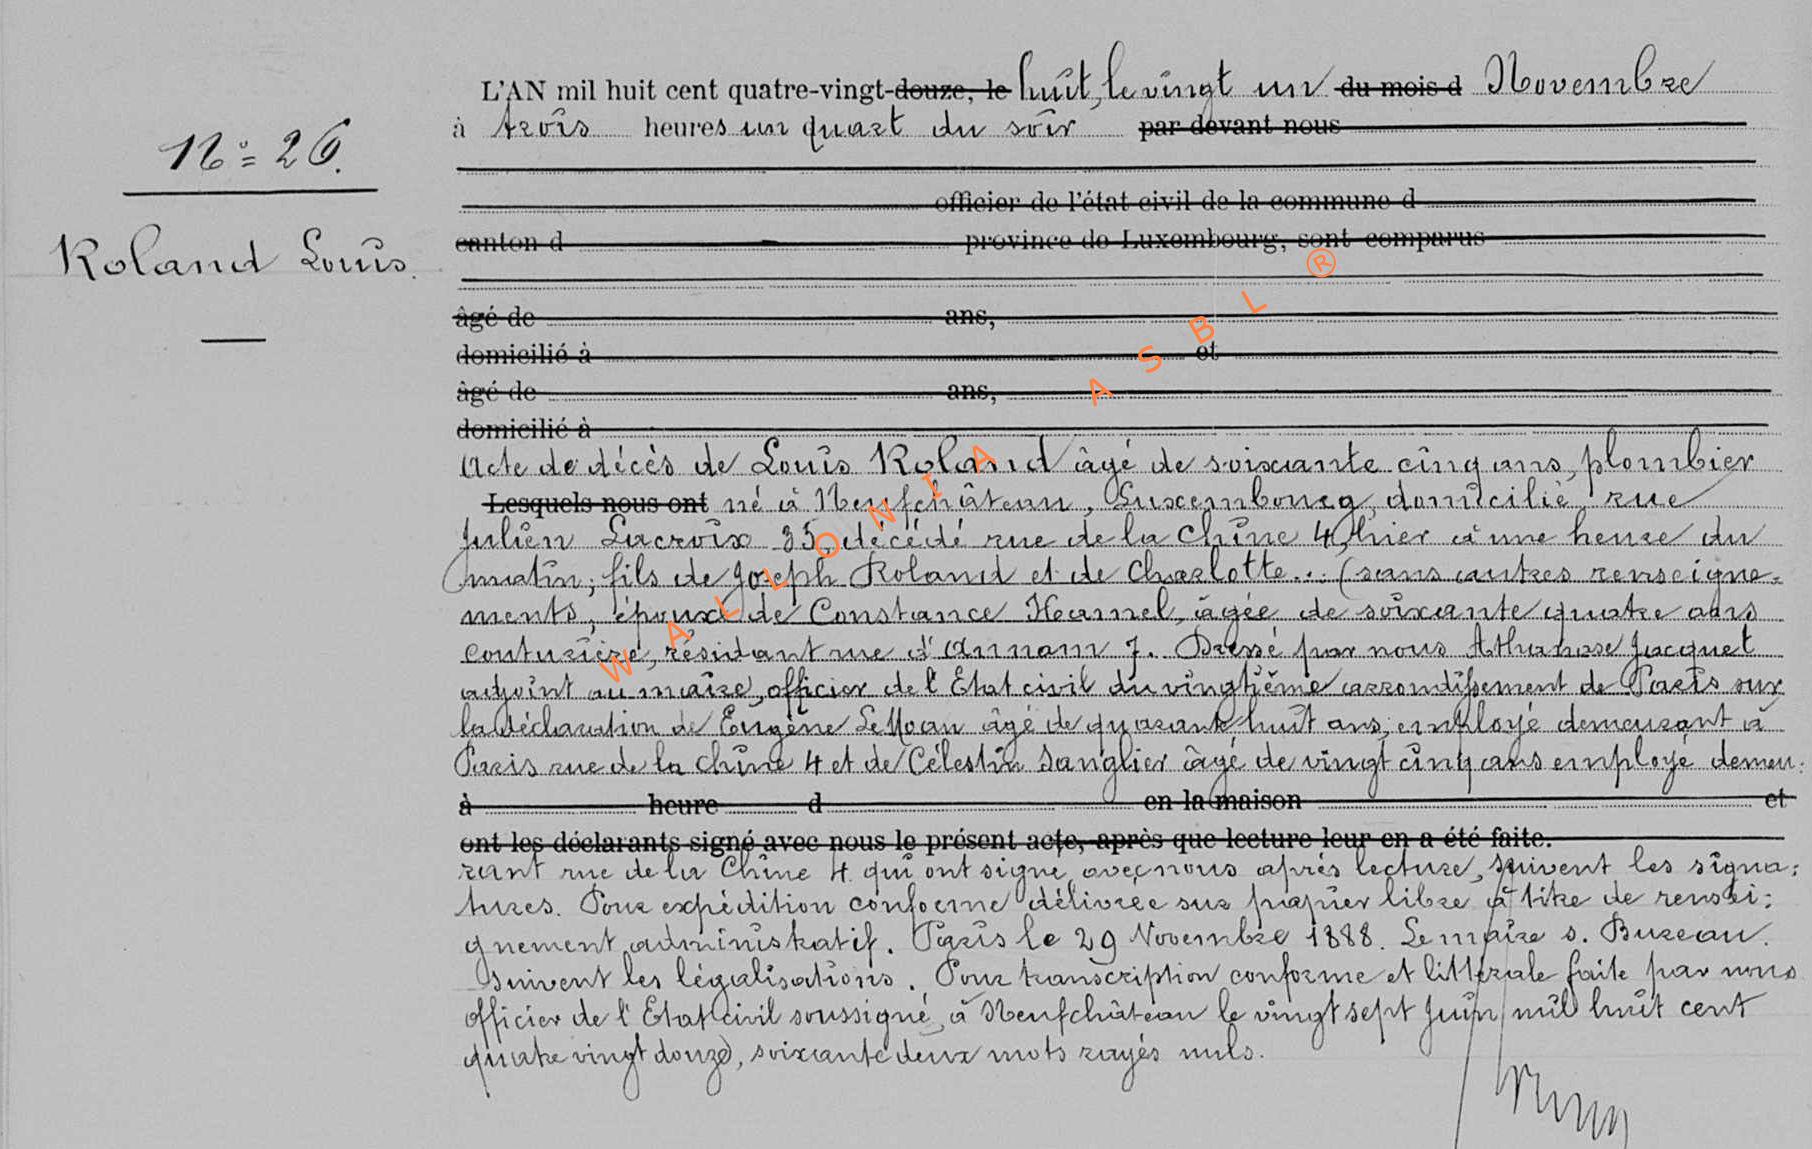 L'AN mil huit cent quatre-vingt-douze, le huit, le vingt un du mois d Novembre
à trois heures un quart du soir par devant nous
N° 26.
officier de l'état civil de la commune d
Roland Louis.
canton d province de Luxembourg, sont comparus
âgé de ans,
domicilié à et
âgé de ans,
domicilié à
Acte de décès de Louis Roland âgé de soixante cinq ans, plombier
Lesquels nous ont né à Neufchâteau, Luxembourg, domicilié, rue
Julien Lacroix 35, décédé rue de la Chine 4, hier à une heure du
matin; fils de Joseph Roland et de Charlotte... (sans autres renseigne-
ments, époux de Constance Hamel, âgée de soixante quatre ans
couturière, résidant rue d'Annam 7. Dressé par nous Athanase Jacquet
adjoint au maire, officier de l'Etat civil du vingtième arrondissement de Paris sur
la déclaration de Eugène Le Moan âgé de quarante huit ans, employé demeurant à
Paris rue de la Chine 4 et de Célestin Sanglier âgé de vingt cinq ans employé demeu:
à heure d en la maison et
ont les déclarants signé avec nous le présent acte, après que lecture leur en a été faite.
rant rue de la Chine 4 qui ont signé avec nous après lecture, suivent les signa:
tures. Pour expédition conforme délivrée sur papier libre à titre de rensei:
gnement administratif. Paris le 29 Novembre 1888. Le maire s. Bureau.
Suivent les légalisations. Pour transcription conforme et littérale faite par nous
officier de l'Etat civil soussigné, à Neufchâteau le vingt sept Juin mil huit cent
quatre vingt douze, soixante deux mots rayés nuls.
WALLONIA ASBL ®